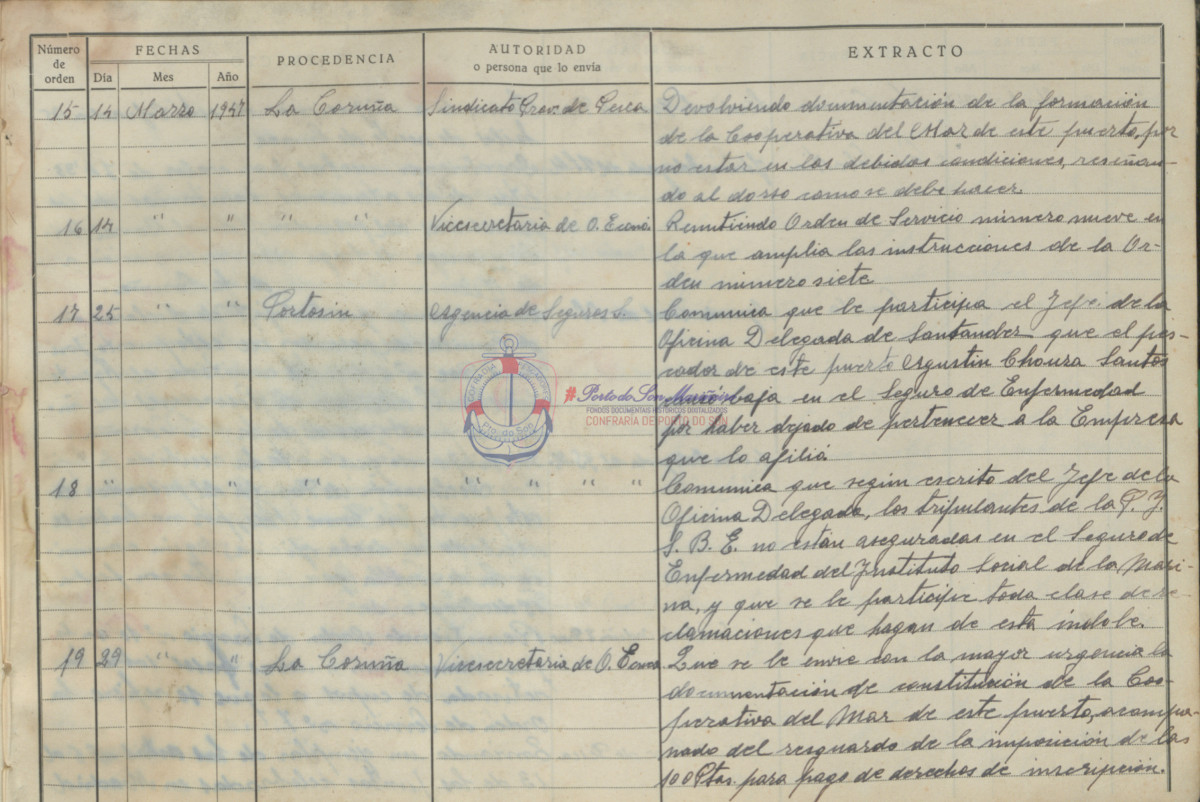 Número de orden
FECHAS
Día Mes Año
PROCEDENCIA
AUTORIDAD
o persona que lo envía
EXTRACTO
15 14 Marzo 1947 La Coruña Sindicato Prov. de Pesca Devolviendo documentación de la formación
de la Cooperativa del Mar de este puerto, por
no estar en las debidas condiciones, reseñan-
do al dorso como se debe hacer.
16 14 " " " " Vicesecretaria de O. Econó. Remitiendo Orden de Servicio número nueve en
la que amplia las instrucciones de la Or-
den número siete
17 25 " " Portosin Agencia de Seguros S. Comunica que le participa el Jefe de la
Oficina Delegada de Santander que el pes-
cador de este puerto Agustin Chouza Santos
causó baja en el Seguro de Enfermedad
por haber dejado de pertenecer a la Empresa
que lo afilió.
18 " " " " " " " " " Comunica que según escrito del Jefe de la
Oficina Delegada, los tripulantes de la P. Y.
S. B. E. no están asegurados en el Seguro de
Enfermedad del Instituto Social de la Mari-
na, y que se le participe toda clase de re-
clamaciones que hagan de esta índole.
19 29 " " La Coruña Vicesecretaria de O. Econó. Que se le envie con la mayor urgencia la
documentación de constitución de la Coo-
perativa del Mar de este puerto, acompa-
ñado del resguardo de la imposición de las
100 Ptas. para pago de derechos de inscripción.
#Porto do Son Mariñeiro
FONDOS DOCUMENTAIS HISTÓRICOS DIXITALIZADOS
CONFRARÍA DE PORTO DO SON
Pto. do Son